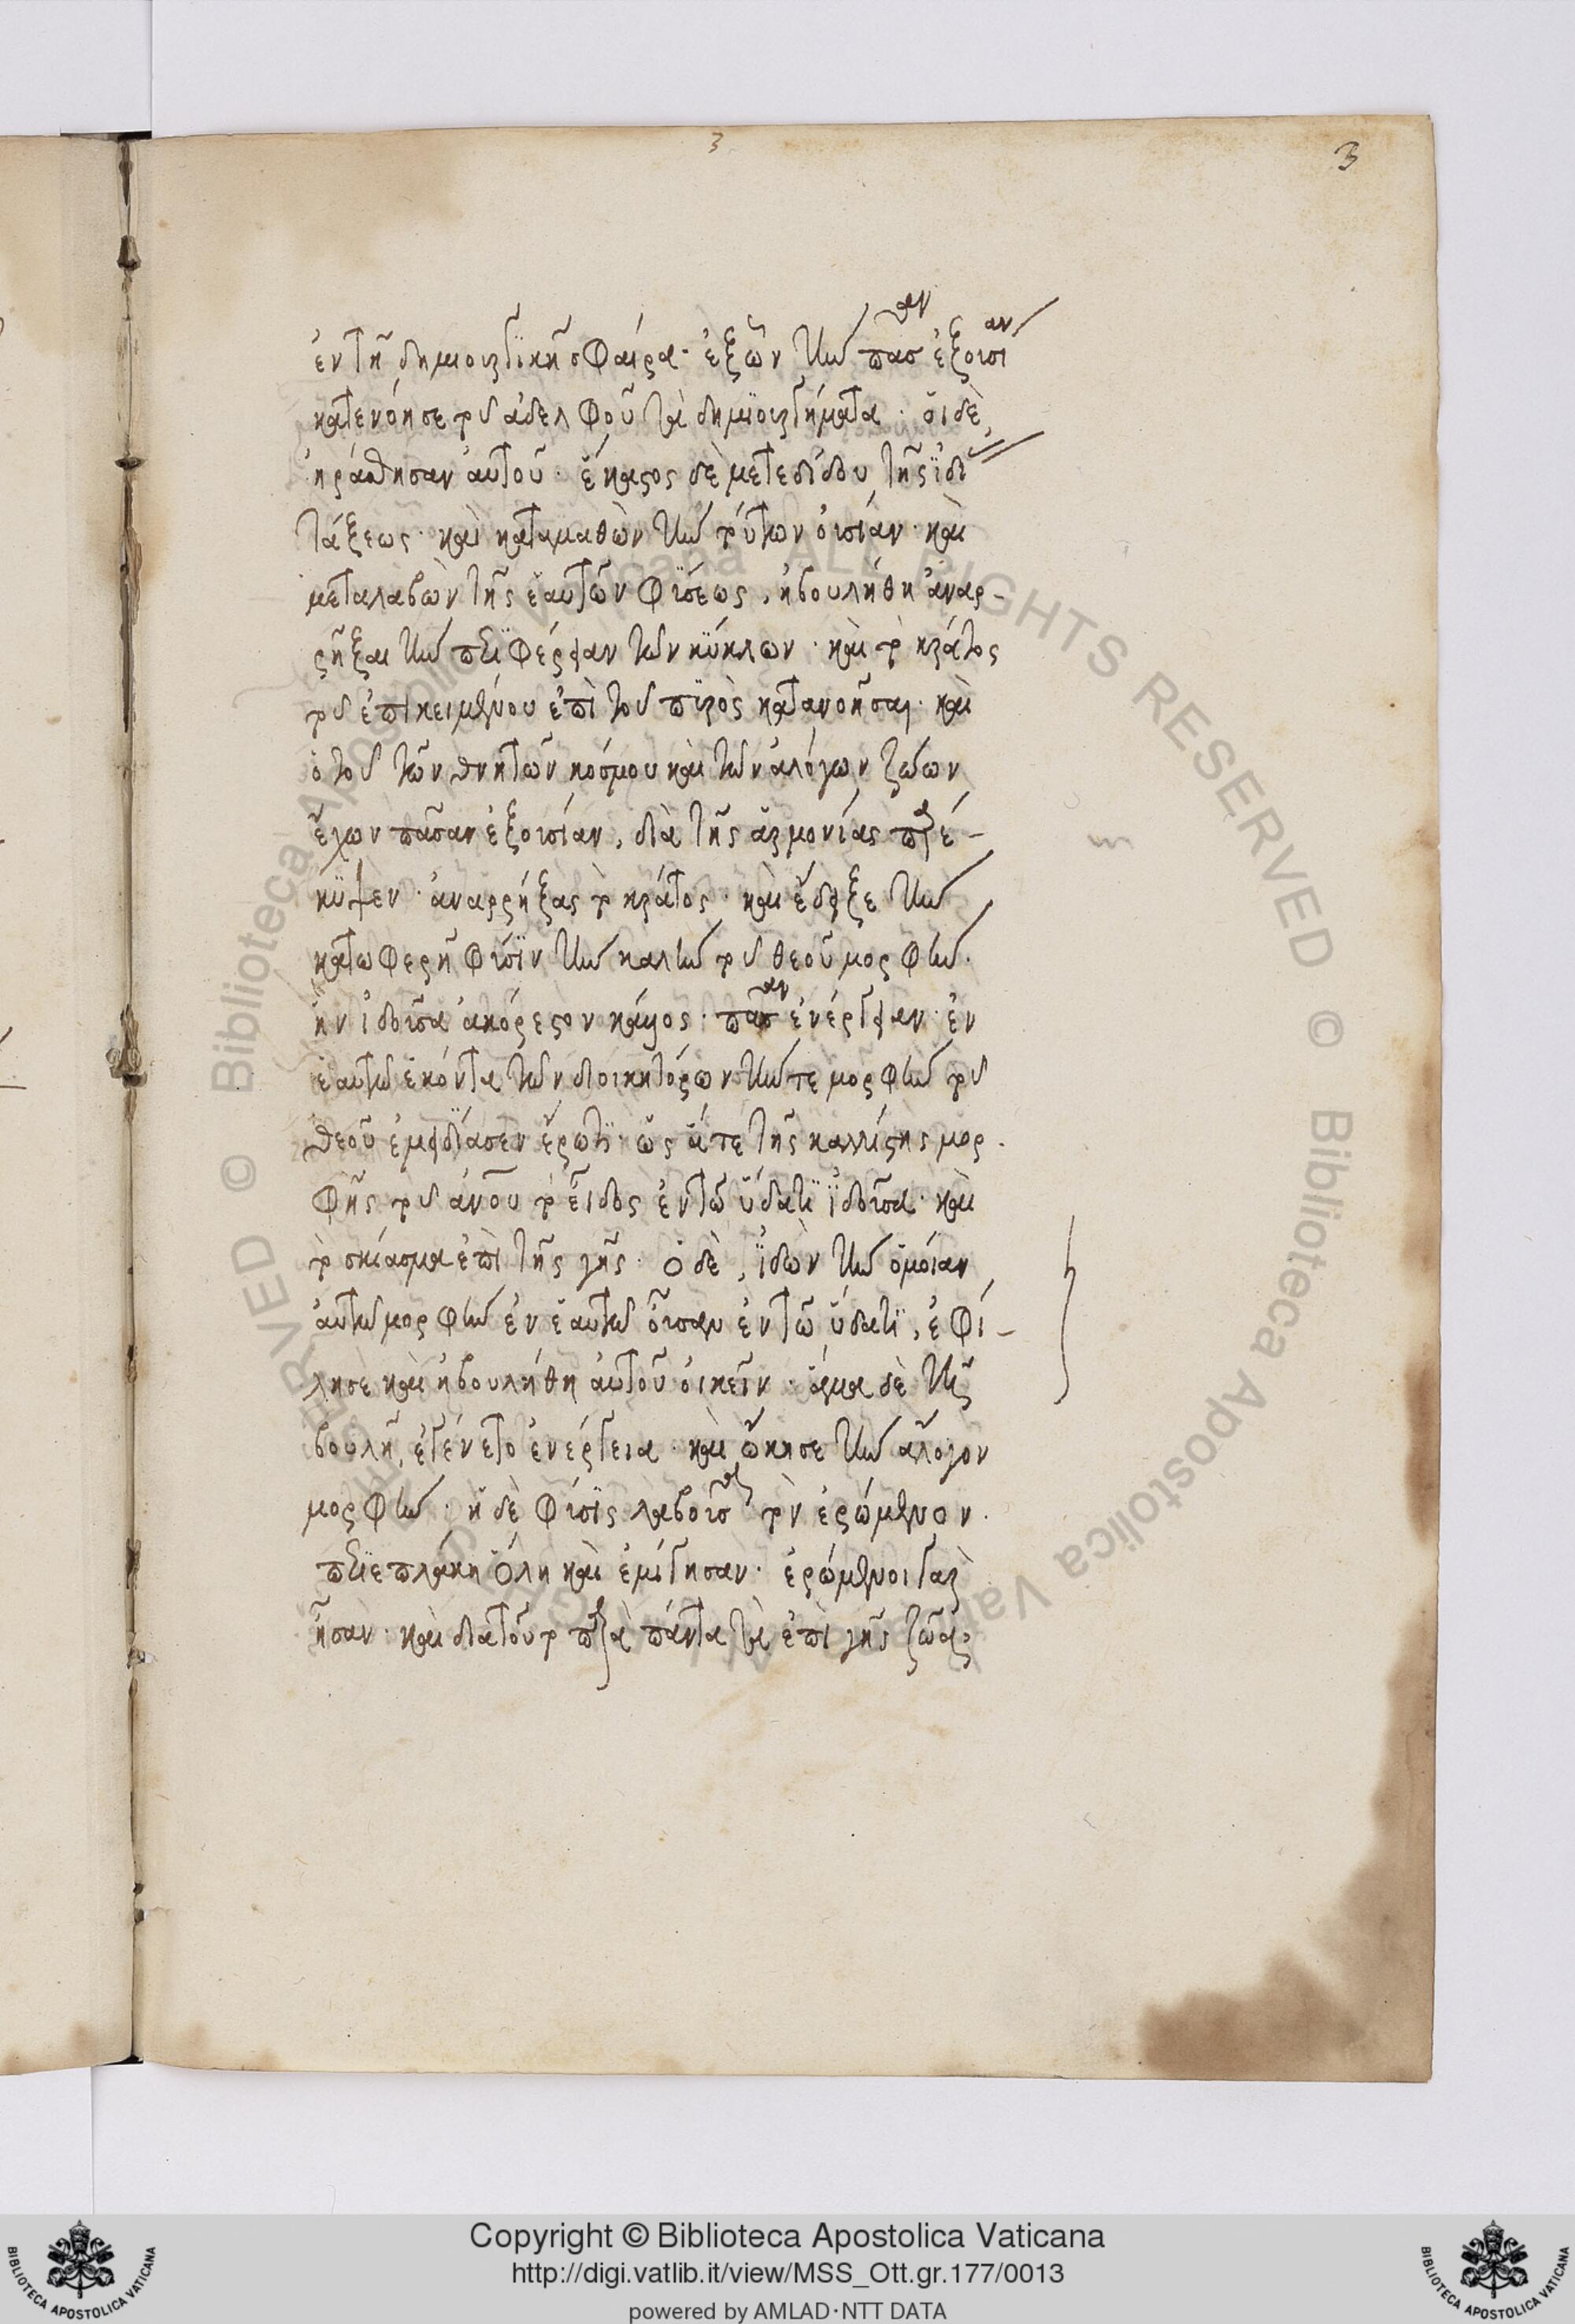 3
3
ἐν τῇ δημιουργικῇ σφαίρα· ἐξῶν τὴν πᾶσαν ἐξουσίαν
κατενόησε τοῦ ἀδελφοῦ τὰ δημιουργήματα· οἱ δὲ
ἠράσθησαν αὐτοῦ· ἕκαστος δὲ μετεδίδου τῆς ἰδί
τάξεως· καὶ καταμαθὼν τὴν τούτων οὐσίαν· καὶ
μεταλαβὼν τῆς ἑαυτῶν φύσεως, ἠβουλήθη ἀναρ-
ρῆξαι τὴν περιφέρειαν τῶν κύκλων· καὶ τὸ κράτος
τοῦ ἐπικειμένου ἐπὶ τοῦ πυρὸς κατανοῆσαι· καὶ
ὁ τοῦ τῶν θνητῶν κόσμου καὶ τῶν ἀλόγων ζώων
ἔχων πᾶσαν ἐξουσίαν, διὰ τῆς ἁρμονίας παρέ-
κυψεν· ἀναρρήξας τὸ κράτος· καὶ ἔδειξε τὴν
κατωφερῆ φύσιν τὴν καλὴν τοῦ θεοῦ μορφήν·
ἣν ἰδοῦσα ἀκόρεστον κάλλος· πᾶσαν ἐνέργειαν ἐν
ἑαυτῷ ἐκόντα τῶν διοικητόρων τήν τε μορφὴν τοῦ
θεοῦ ἐμειδίασεν ἔρωτι· ὡς ἅτε τῆς καλλίστης μορ-
φῆς τοῦ ἀνου τὸ εἶδος ἐν τῷ ὕδατι ἰδοῦσα· καὶ
τὸ σκίασμα ἐπὶ τῆς γῆς· ὁ δὲ, ἰδὼν τὴν ὁμοίαν
αὐτῷ μορφὴν ἐν ἑαυτῷ οὖσαν ἐν τῷ ὕδατι, ἐφί-
λησε καὶ ἠβουλήθη αὐτοῦ οἰκεῖν· ἅμα δὲ τῇ
βουλῇ, ἐγένετο ἐνέργεια· καὶ ᾤκησε τὴν ἄλογον
μορφήν· ἡ δὲ φύσις λαβοῦσα τὸν ἐρώμενον·
περιεπλάκη ὅλη καὶ ἐμίγησαν· ἐρώμενοι γὰρ
ἦσαν· καὶ διὰ τοῦτο παρὰ πάντα τὰ ἐπὶ γῆς ζῶα·
Copyright © Biblioteca Apostolica Vaticana
http://digi.vatlib.it/view/MSS_Ott.gr.177/0013
powered by AMLAD·NTT DATA
BIBLIOTECA APOSTOLICA VATICANA
BIBLIOTECA APOSTOLICA VATICANA